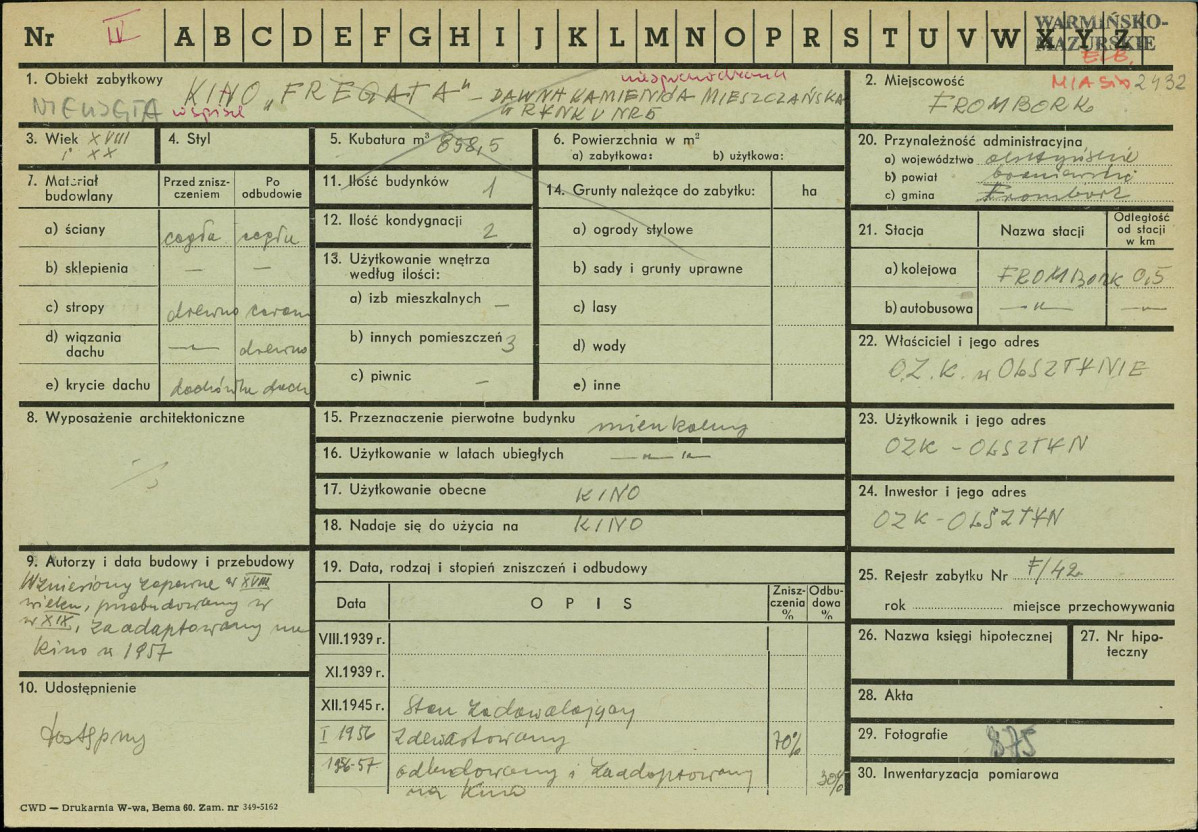 Nr IV A B C D E F G H I J K L M N O P R S T U V W X Y Z
WARMIŃSKO-
MAZURSKIE
E. B.
1. Obiekt zabytkowy
KINO „FREGATA" – DAWNA KAMIENICA MIESZCZAŃSKA
W RYNKU NR 5
NIE UJĘTA w spisie
2. Miejscowość MIASTO 2432
FROMBORK
3. Wiek XVIII
i XX
4. Styl
5. Kubatura m³ 898,5
6. Powierzchnia w m²
a) zabytkowa: b) użytkowa:
7. Materiał
budowlany
Przed znisz-
czeniem
Po
odbudowie
a) ściany cegła cegła
b) sklepienia — —
c) stropy drewno ceram
d) wiązania
dachu —„— drewno
e) krycie dachu dachówka dach
8. Wyposażenie architektoniczne
9. Autorzy i data budowy i przebudowy
Wzniesiony zapewne w XVIII
wieku, przebudowany w
w XIX, zaadaptowany na
kino w 1957
10. Udostępnienie
dostępny
11. Ilość budynków 1
12. Ilość kondygnacji 2
13. Użytkowanie wnętrza
według ilości:
a) izb mieszkalnych —
b) innych pomieszczeń 3
c) piwnic —
14. Grunty należące do zabytku: ha
a) ogrody stylowe
b) sady i grunty uprawne
c) lasy
d) wody
e) inne
15. Przeznaczenie pierwotne budynku mieszkalny
16. Użytkowanie w latach ubiegłych —„—„—
17. Użytkowanie obecne KINO
18. Nadaje się do użycia na KINO
19. Data, rodzaj i stopień zniszczeń i odbudowy
Data OPIS Znisz-
czenia
% Odbu-
dowa
%
VIII.1939 r.
XI.1939 r.
XII.1945 r. Stan zadowalający
I 1956 Zdewastowany 70%
1956-57 odbudowany i zaadoptowany 30%
na kino
20. Przynależność administracyjna
a) województwo olsztyńskie
b) powiat braniewski
c) gmina Frombork
21. Stacja Nazwa stacji Odległość
od stacji
w km
a) kolejowa FROMBORK 0,5
b) autobusowa —„— —„—
22. Właściciel i jego adres
O.Z.K. w OLSZTYNIE
23. Użytkownik i jego adres
OZK – OLSZTYN
24. Inwestor i jego adres
OZK – OLSZTYN
25. Rejestr zabytku Nr F/42
rok miejsce przechowywania
26. Nazwa księgi hipotecznej
27. Nr hipo-
teczny
28. Akta
29. Fotografie 875
30. Inwentaryzacja pomiarowa
CWD — Drukarnia W-wa, Bema 60. Zam. nr 349-5162